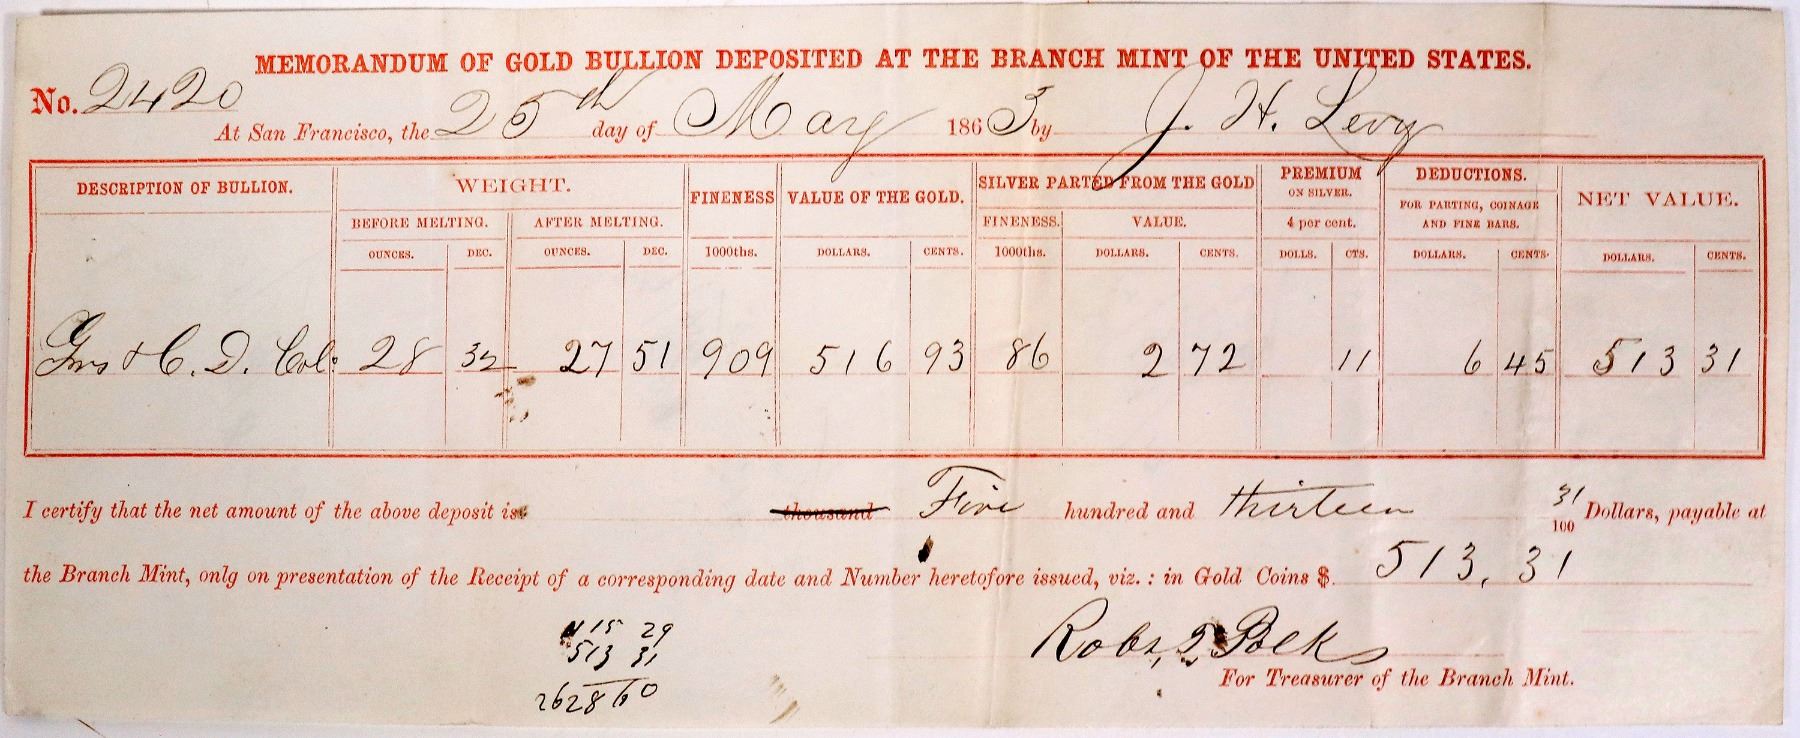 MEMORANDUM OF GOLD BULLION DEPOSITED AT THE BRANCH MINT OF THE UNITED STATES.
No. 2420
At San Francisco, the 25th day of May 1863 by J. H. Levy
DESCRIPTION OF BULLION. WEIGHT. FINENESS VALUE OF THE GOLD. SILVER PARTED FROM THE GOLD PREMIUM ON SILVER. DEDUCTIONS. NET VALUE.
BEFORE MELTING. AFTER MELTING. FINENESS. VALUE. 4 per cent. FOR PARTING, COINAGE AND FINE BARS.
OUNCES. DEC. OUNCES. DEC. 1000ths. DOLLARS. CENTS. 1000ths. DOLLARS. CENTS. DOLLS. CTS. DOLLARS. CENTS. DOLLARS. CENTS.
Grs & C. D. Col: 28 32 27 51 909 516 93 86 2 72 11 6 45 513 31
I certify that the net amount of the above deposit is thousand Five hundred and thirteen 31/100 Dollars, payable at
the Branch Mint, only on presentation of the Receipt of a corresponding date and Number heretofore issued, viz.: in Gold Coins $. 513.31
15 29
513 31
2628 60
For Treasurer of the Branch Mint.